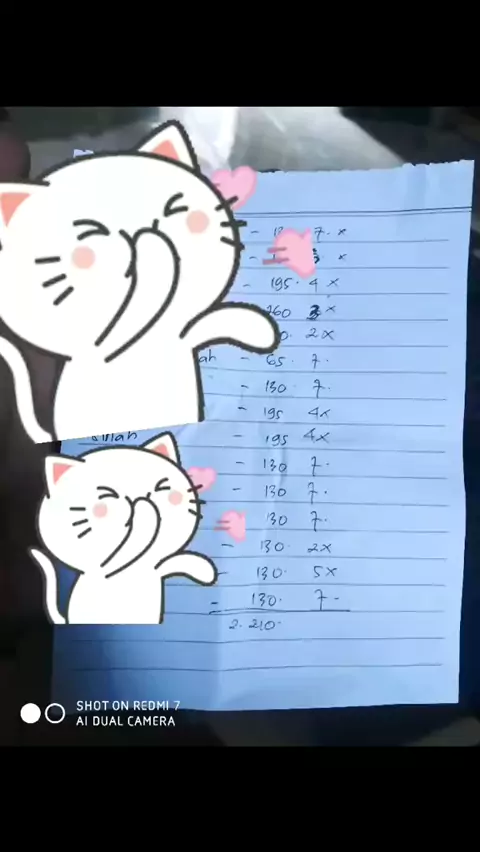 7. x
x
- 195. 4 x
260 3 x
2 x
ah - 65. 7.
- 130 7.
- 195 4x
- 195 4x
- 130 7.
- 130 7.
130 7.
- 130. 2x
- 130. 5x
- 130. 7-
2.210.
SHOT ON REDMI 7
AI DUAL CAMERA